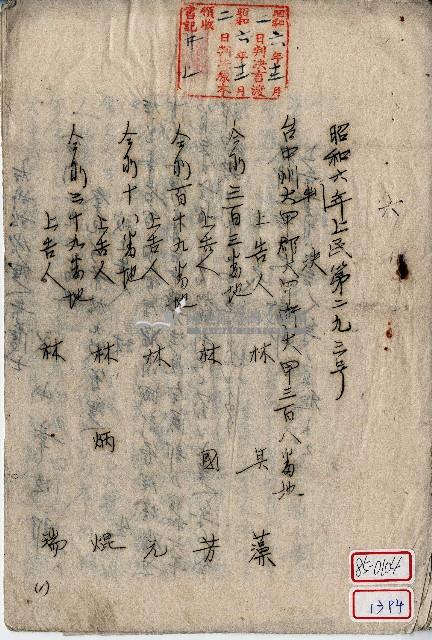 昭和六年十二月
一日判決言渡
昭和六年十二月
二日判決原本
領收
書記
六
昭和六年上民第二九二号
判決
台中州大甲郡大甲街大甲三百八番地
上告人 林其藻
仝所三百三番地
上告人 林國芳
仝所百十九番地
上告人 林元
仝所十八番地
上告人 林炳焜
仝所二十九番地
上告人 林瑞
(1)
85-0164
1394